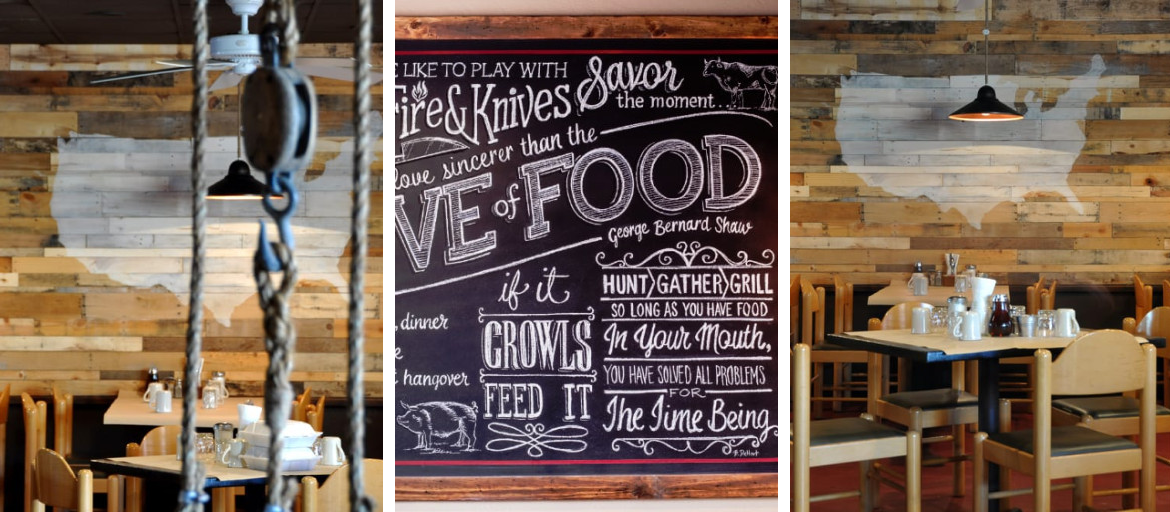 E LIKE TO PLAY WITH
Fire & Knives
Savor
the moment...
love sincerer than the
VE of FOOD
George Bernard Shaw
, dinner
e
t hangover
if it
GROWLS
FEED IT
HUNT GATHER GRILL
SO LONG AS YOU HAVE FOOD
In Your Mouth,
YOU HAVE SOLVED ALL PROBLEMS
FOR
The Time Being